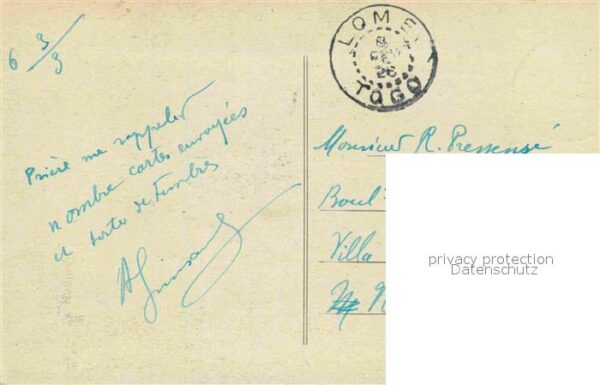 6 3/3
LOME
8
26
TOGO
Prière me rappeler
nombre cartes envoyées
et sorte de timbres
Monsieur R. Pressensé
Boul
Villa
privacy protection
Datenschutz